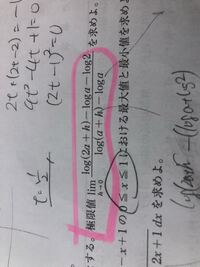 2t+(2t-2)=-1
4t²-4t+1=0
(2t-1)²=0
t=1/2
する。極限値 lim h→0 (log(2a+h)-loga-log2)/(log(a+h)-loga) を求めよ。
-x+1の0≦x≦1における最大値と最小値を求めよ。
2x+1 dxを求めよ。